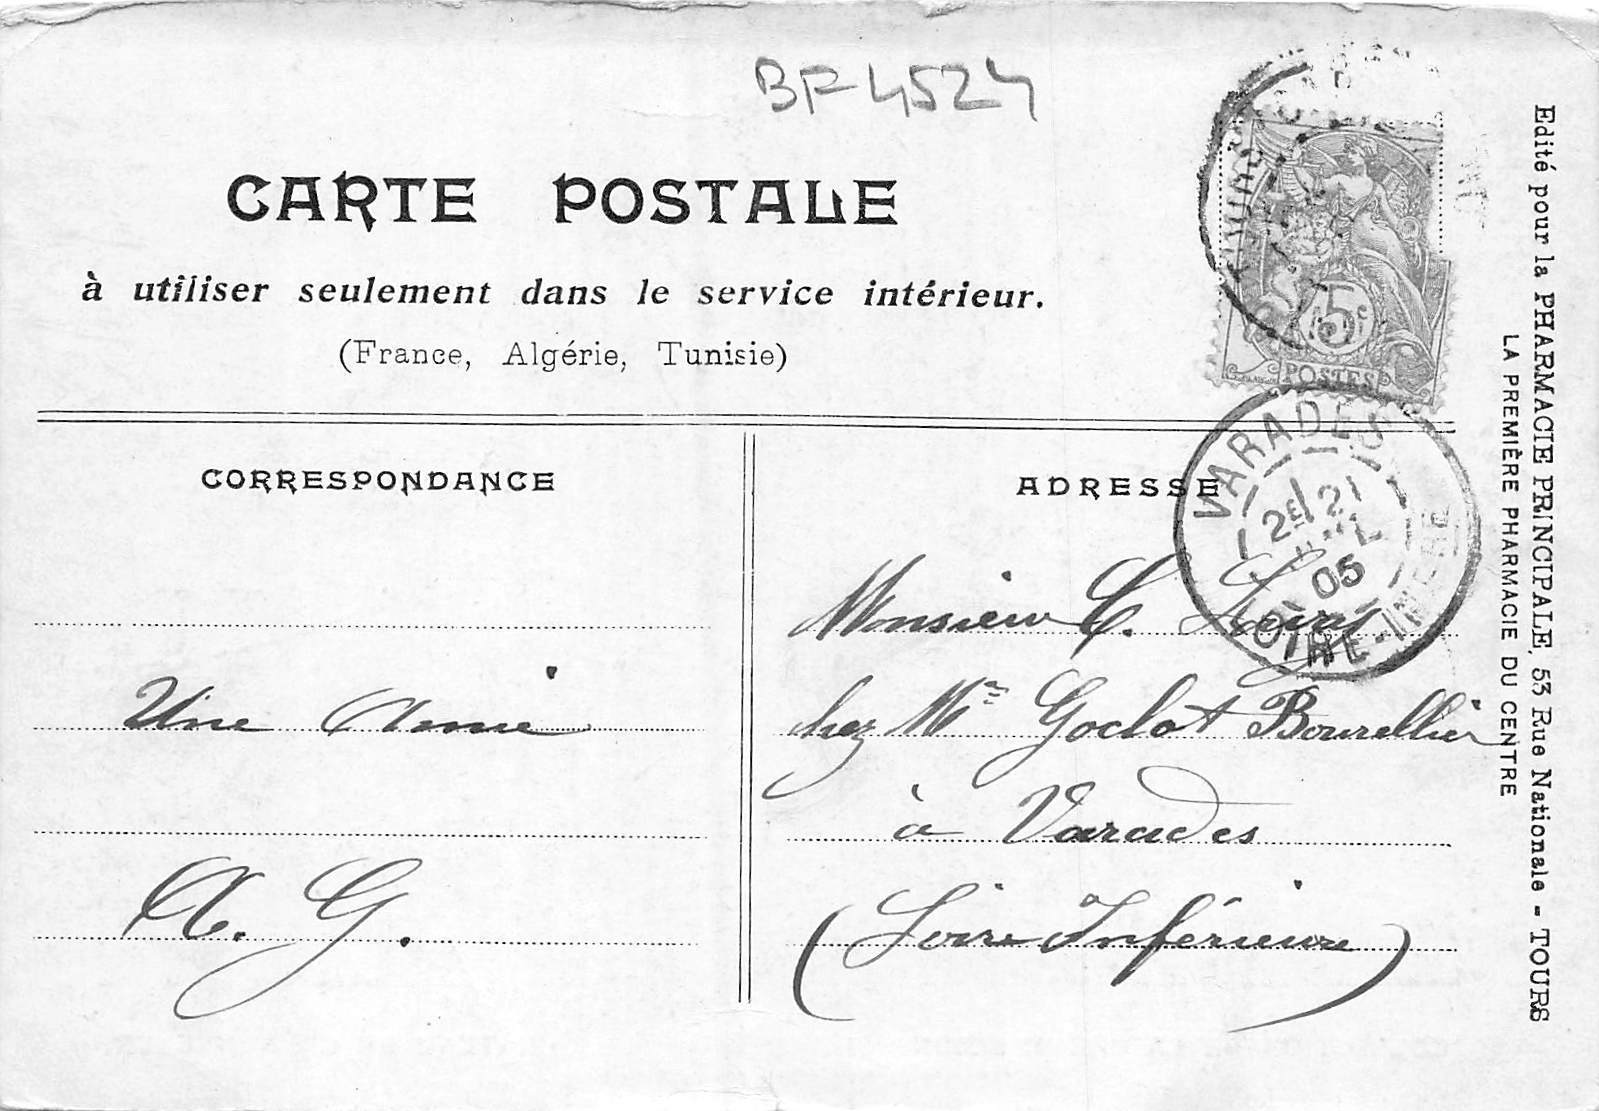 BF 4524
CARTE POSTALE
à utiliser seulement dans le service intérieur.
(France, Algérie, Tunisie)
5c
POSTES
CORRESPONDANCE
Une Amie
A. G.
ADRESSE
VARADES
2E 21
05
LOIRE-INFRE
Monsieur C.
chez Mr Goclot Bourrellier
à Varades
(Loire Inférieure)
Edité pour la PHARMACIE PRINCIPALE, 53 Rue Nationale - TOURS
LA PREMIÈRE PHARMACIE DU CENTRE